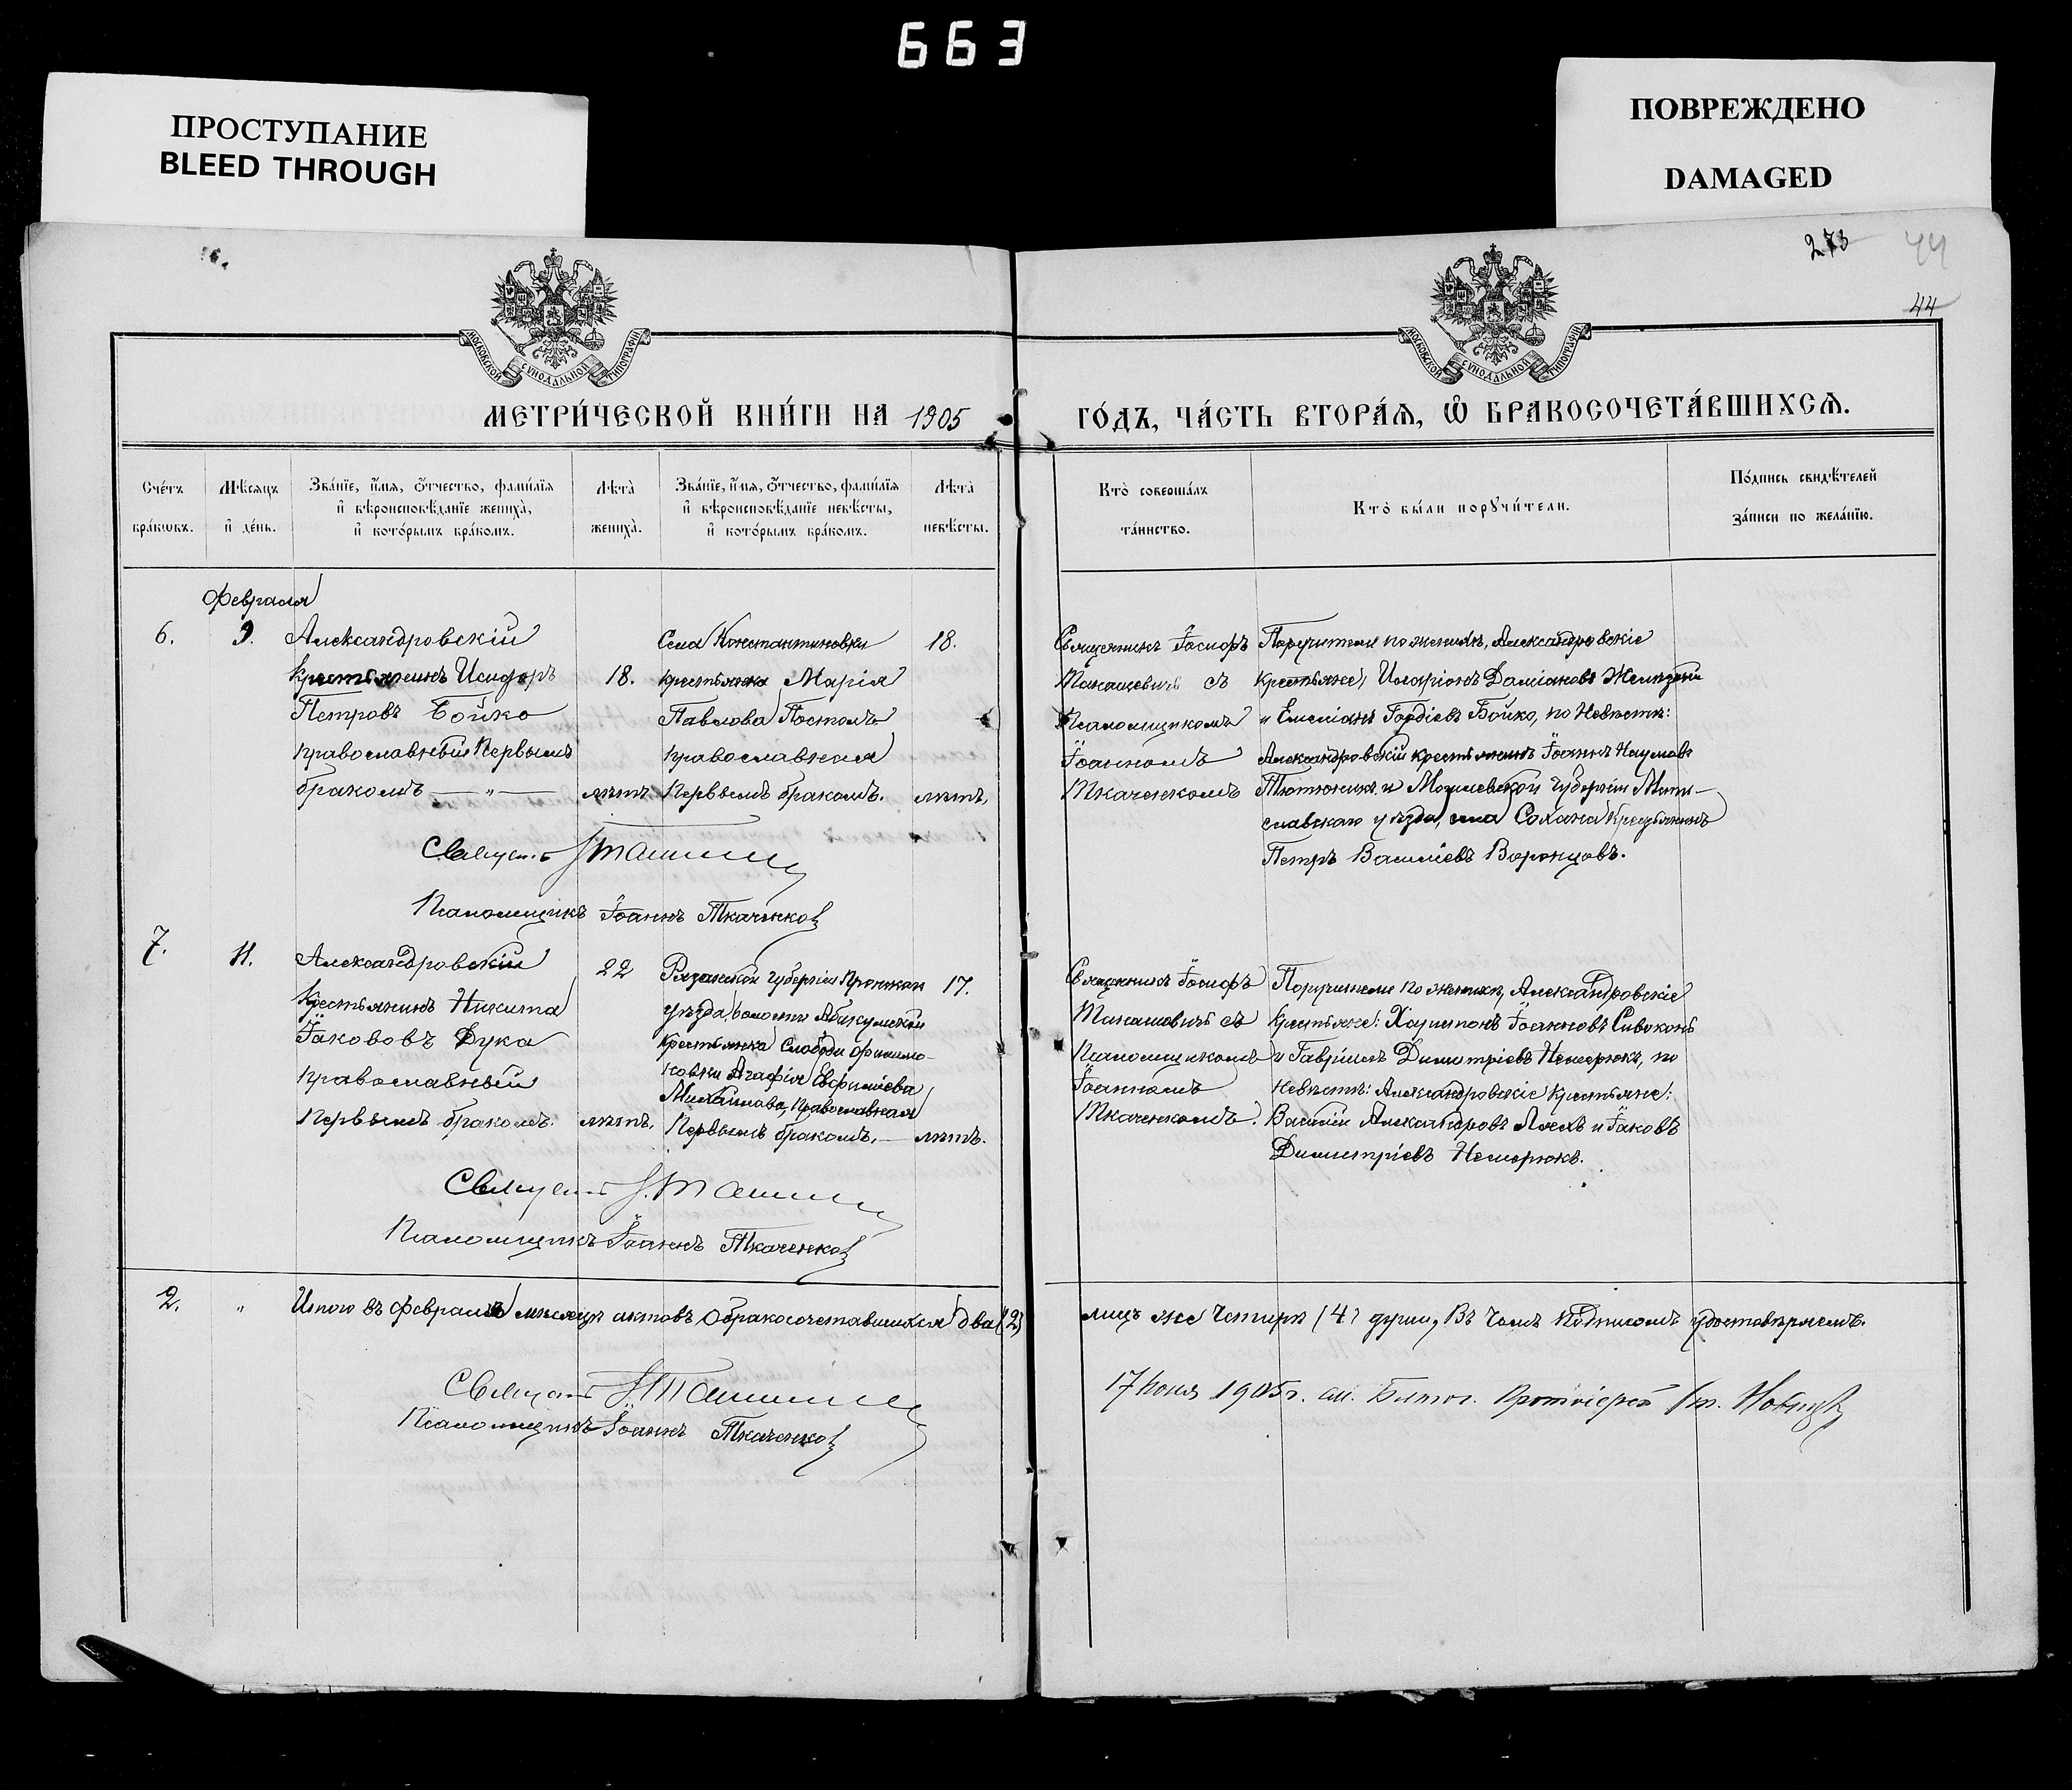 663
ПРОСТУПАНИЕ
BLEED THROUGH
ПОВРЕЖДЕНО
DAMAGED
273 44
44
МОСКОВСКОЙ СѴНОДАЛЬНОЙ ТИПОГРАФІИ
МОСКОВСКОЙ СѴНОДАЛЬНОЙ ТИПОГРАФІИ
МЕТРИ́ЧЕСКОЙ КНИ́ГИ НА 1905
ГО́ДЪ, ЧА́СТЬ ВТОРА́Я, Ѡ БРАКОСОЧЕТА́ВШИХСЯ.
Сче́тъ
бра́кωвъ.
Мѣ́сяцъ
и҆ де́нь.
Зва́нїе, и҆́мя, ѻ҆́тчество, фами́лїя
и҆ вѣроисповѣ́данїе жениха̀,
и҆ кото́рымъ бра́комъ.
Лѣта̀
жениха̀.
Зва́нїе, и҆́мя, ѻ҆́тчество, фами́лїя
и҆ вѣроисповѣ́данїе невѣ́сты,
и҆ кото́рымъ бра́комъ.
Лѣта̀
невѣ́сты.
Кто̀ соверша́лъ
та́инство.
Кто̀ бы́ли порꙋчи́тели.
По́дпись свидѣ́телей
за́писи по жела́нїю.
Февраля
6.
9.
Александровскій
Крестьянинъ Исидоръ
Петровъ Бойко
православный Первымъ
бракомъ — „ —
18.
лѣтъ
Села Константиновки
крестьянка Марія
Павлова Постолъ
православная
Первымъ бракомъ.
18.
лѣтъ.
Священникъ Іосифъ
съ
Псаломщикомъ
Іоанномъ
Ткаченкомъ
Поручители по женихѣ, Александровскіе
крестьяне, Иларіонъ Даміановъ
и Емеліанъ Гордіевъ Бойко, по Невѣстѣ:
Александровскій крестьянинъ Іоаннъ Наумовъ
Тютюникъ и Могилевской губерніи Мсти-
славскаго уѣзда, села Крестьянинъ
Петръ Василіевъ Воронцовъ.
Священ.
Псаломщикъ Іоаннъ Ткаченко
7.
11.
Александровскій
Крестьянинъ Никита
Іаковъ Дука
православный
Первымъ бракомъ.
22
лѣтъ.
Рязанской губерніи Пронскаго
уѣзда, волости
Крестьянка Слободы Филимо-
новки Агафія Евфиміева
Михайлова, Православная
Первымъ бракомъ. —
17.
лѣтъ.
Священникъ Іосифъ
съ
Псаломщикомъ
Іоанномъ
Ткаченкомъ.
Поручители по женихѣ, Александровскіе
Крестьяне: Харитонъ Іоанновъ Сивоконь
и Гавріилъ Димитріевъ Немерюкъ, по
Невѣстѣ: Александровскіе Крестьяне:
Василій Александровъ Ляхъ и Іаковъ
Димитріевъ Немерюкъ.
Священ.
Псаломщикъ Іоаннъ Ткаченко
2.
„
Итого въ Февралѣ мѣсяцѣ актовъ о бракосочетавшихся два (2)
лицъ же Четыре (4) души, Въ Чемъ Подписомъ удостовѣряемъ.
Священ.
Псаломщикъ Іоаннъ Ткаченко
17 Іюня 1905 г. Протоіерей